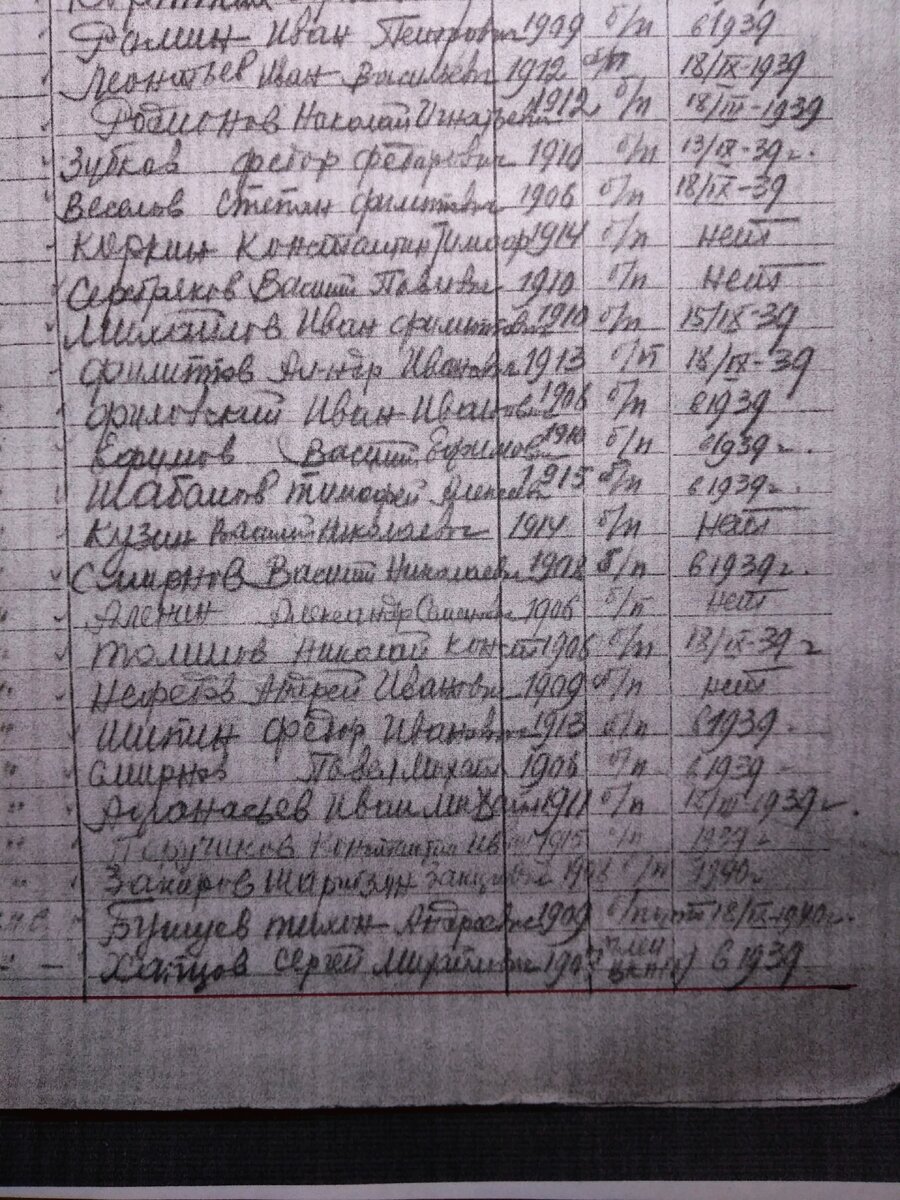 Ромин Иван Петрович 1909 б/п в 1939
Леонтьев Иван Васильев 1912 б/п 18/IX-1939
Родионов Николай Игнатьеви 1912 б/п 18/III-1939
Зубков Федор Федорович 1910 б/п 13/IX-39 г.
Веселов Степан Филиппович 1906 б/п 18/IX-39
Коркин Константин Тимофе 1914 б/п нет
Серебряков Василий Павлович 1910 б/п нет
Михайлов Иван Филиппович 1910 б/п 15/IX-39
Филиппов Ал-ндр Иванович 1913 б/п 18/IX-39
Фриловский Иван Иванов 1906 б/п в 1939
Василий Ефимов 1910 б/п в 1939 г.
Шабанов Тимофей Алексеев 1915 б/п в 1939 г.
Кузин Василий Николаевич 1914 б/п нет
Смирнов Василий Николаев 1908 б/п в 1939 г.
Аленин Александр 1906 б/п нет
Николай Конст 1906 б/п 18/IX-39 г
Нефедов Андрей Иванович 1909 б/п нет
Шипин Федор Иванович 1913 в 1939
Смирнов Павел Михайл 1906 б/п в 1939
Афанасьев Иван Михайл 1911 б/п 1939 г.
Поручиков Константин Ив 1915 б/п 1939 г
Закиров 1940 г
Бушуев Тихон Андреевич 1909 б/п 18/IX-1940 г.
Сергей Михайлович член в 1939